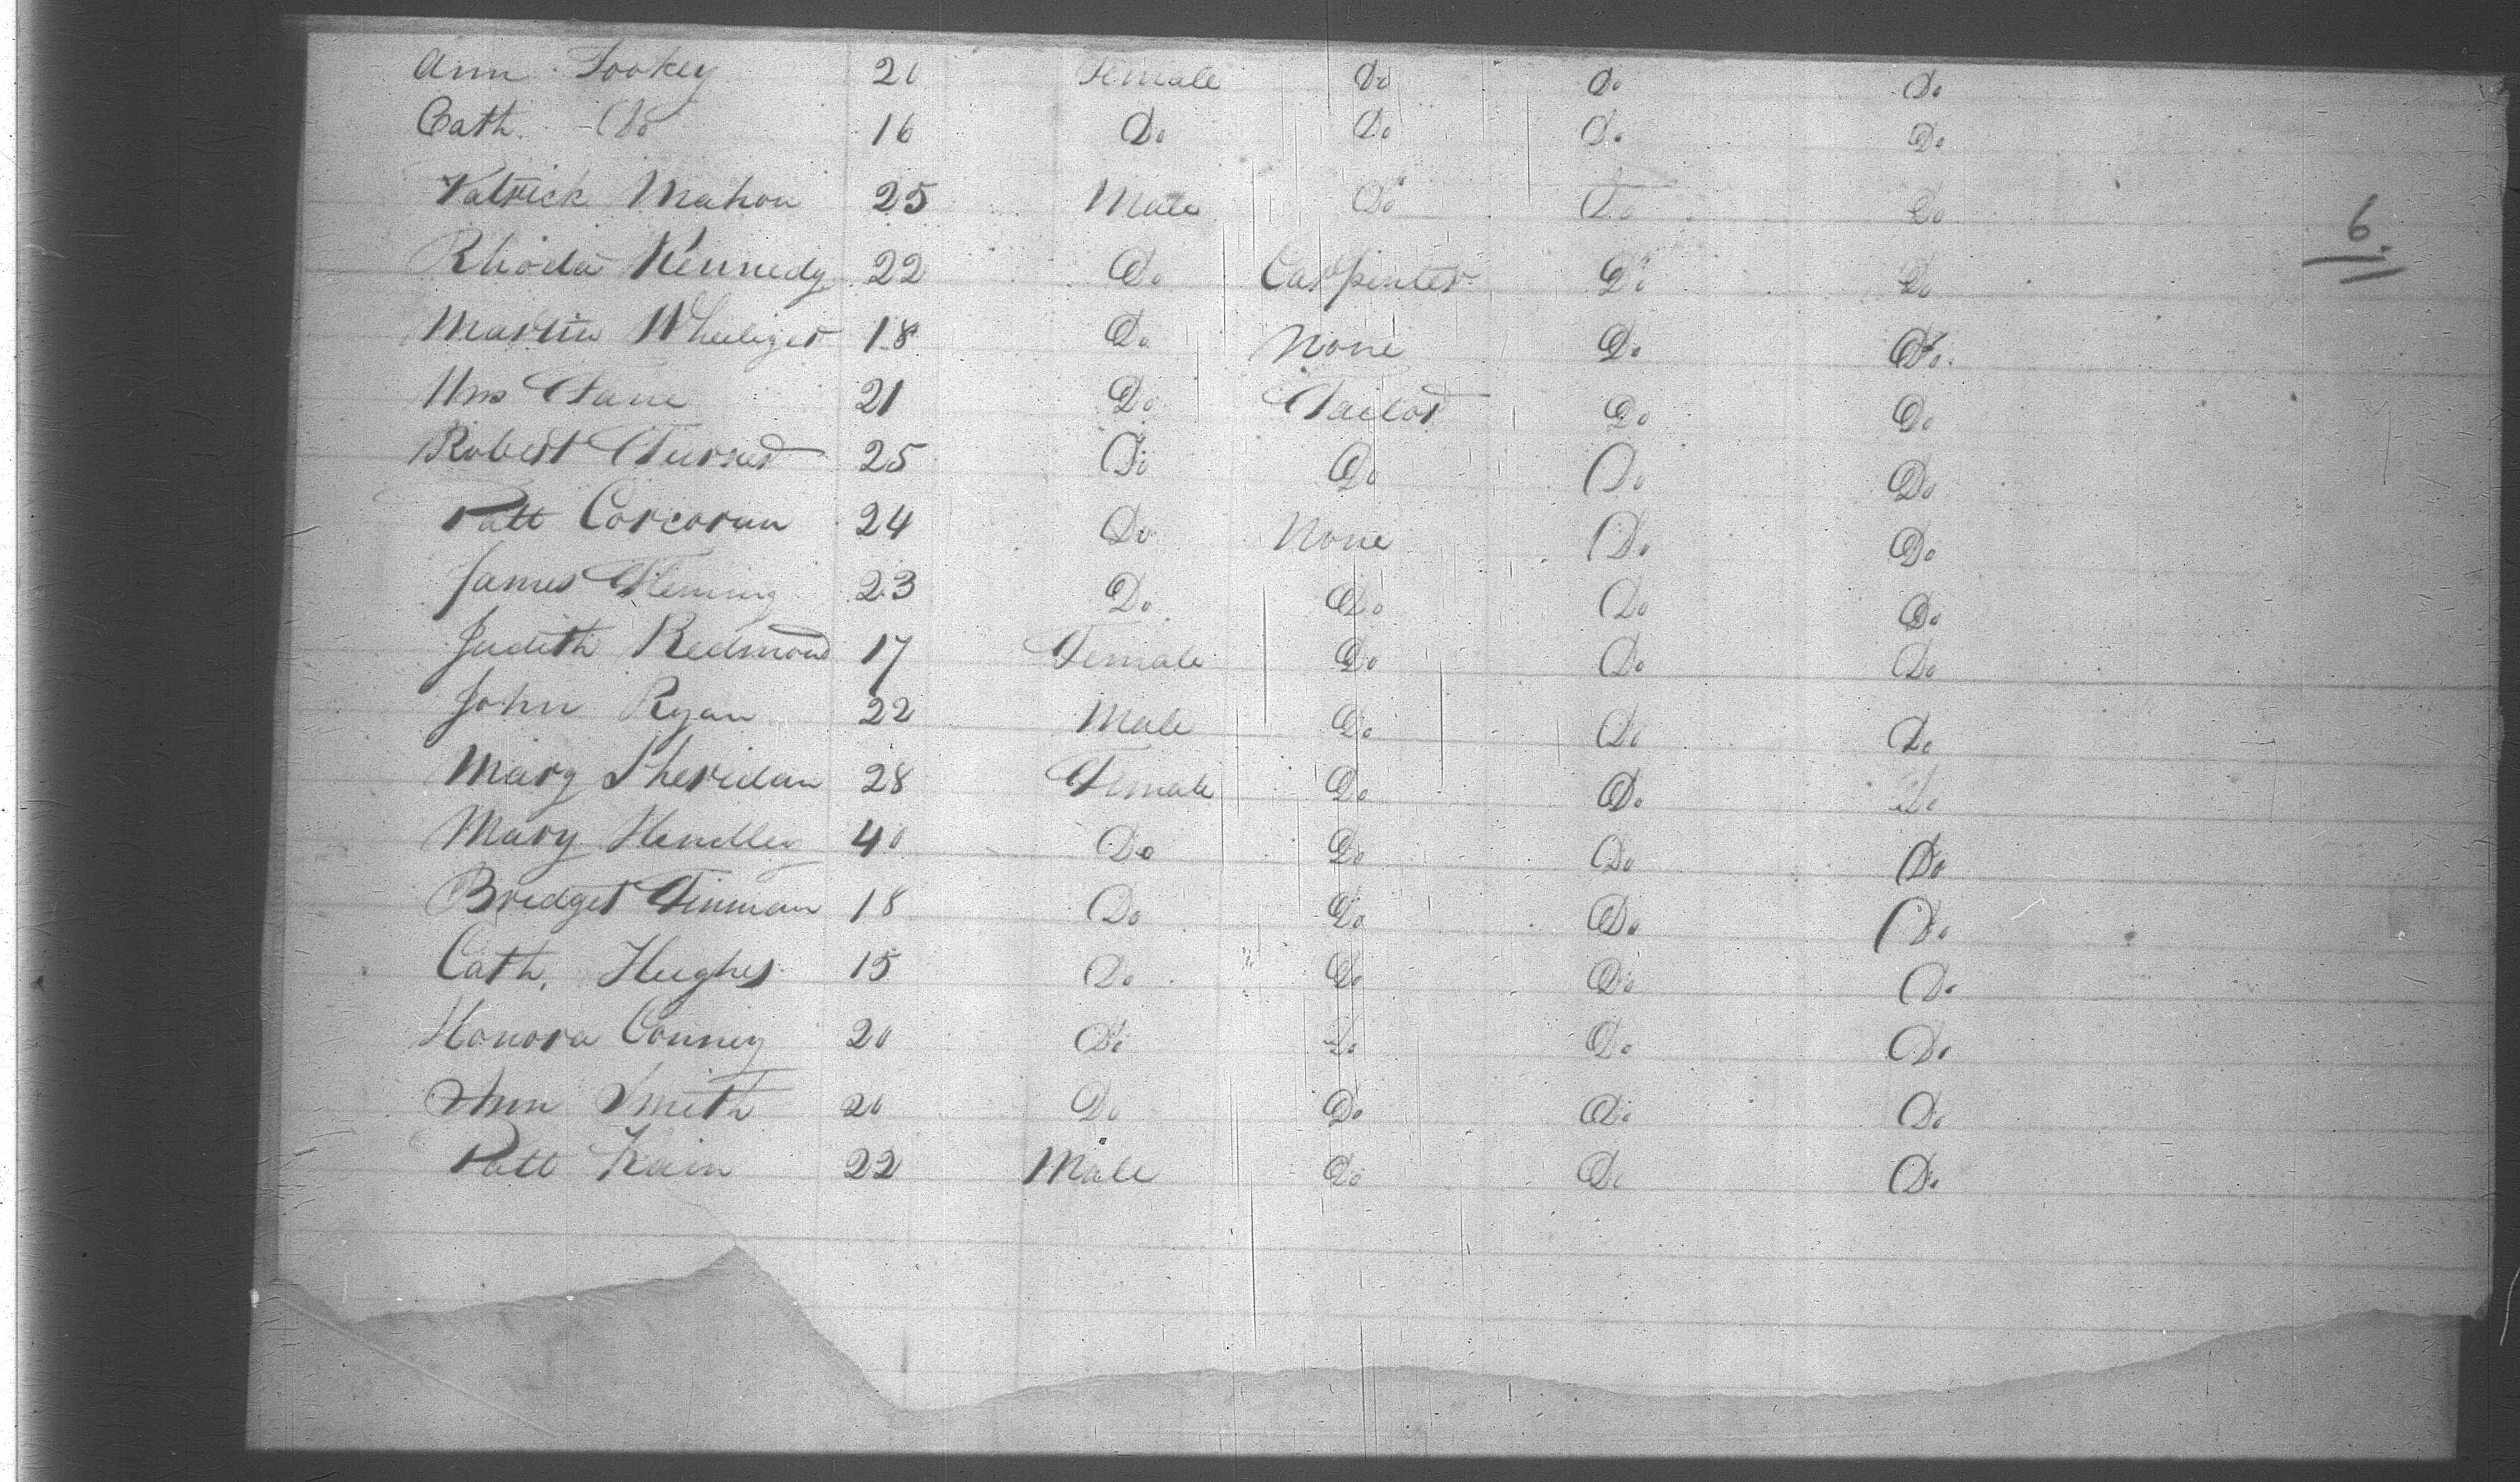 Ann Tookey 20 Female Do Do Do
Cath. Do 16 Do Do Do Do
Patrick Mahon 25 Male Do Do Do
6.
Rhoda Kennedy 22 Do Carpenter Do Do
Martin 18 Do None Do Do
Wm 21 Do Tailor Do Do
Robert Turner 25 Do Do Do Do
Patt Corcoran 24 Do None Do Do
James Fleming 23 Do Do Do Do
Judith Redmond 17 Female Do Do Do
John Ryan 22 Male Do Do Do
Mary Sheridan 28 Female Do Do Do
Mary 40 Do Do Do Do
Bridget 18 Do Do Do Do
Cath. Hughes 15 Do Do Do Do
Honora Conney 20 Do Do Do Do
Ann Smith 20 Do Do Do Do
Patt Kain 22 Male Do Do Do